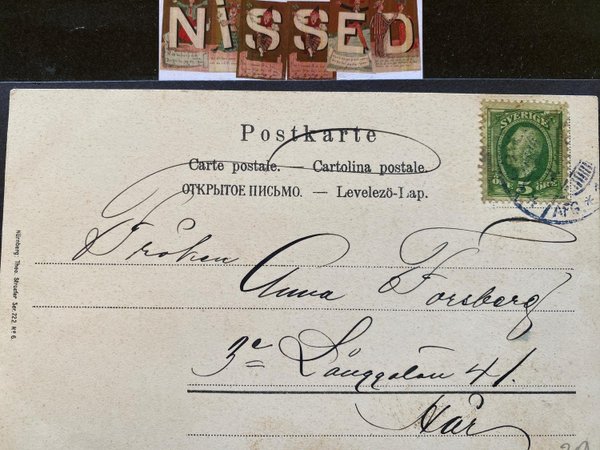 NISSED
Postkarte
Carte postale. — Cartolina postale.
ОТКРЫТОЕ ПИСЬМО. — Levelező-Lap.
SVERIGE
5 ÖRE
AFG
Fröken
Anna Forsberg
3e Långgatan 41.
Här
Nürnberg. Theo. Stroefer Ser. 222 № 6.